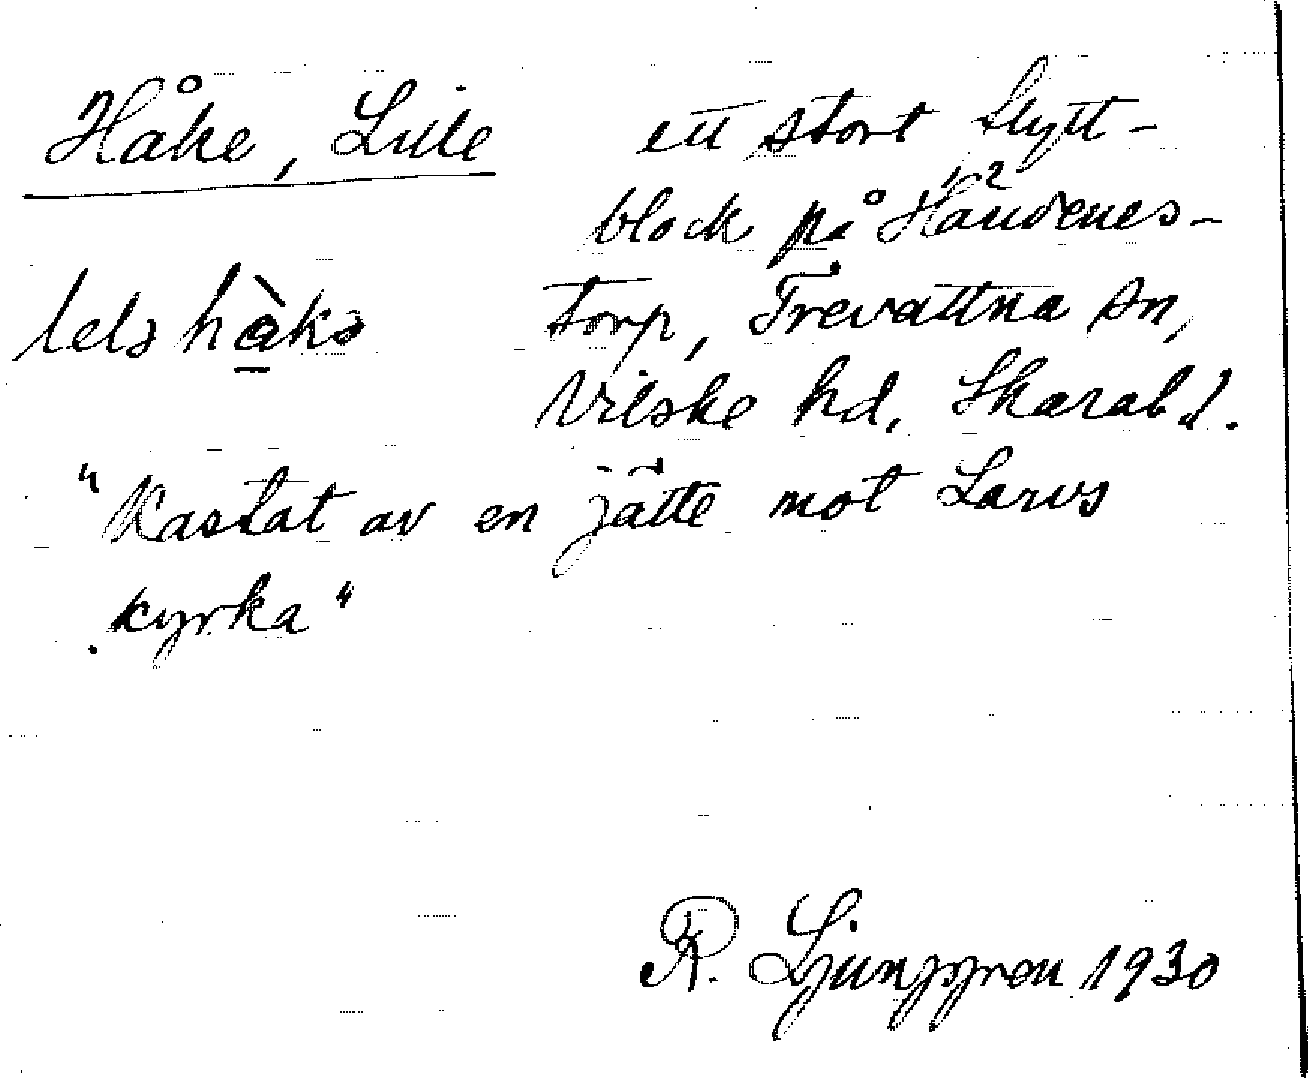 Håke, Lille ett stort flytt-
block på Händenes-
lelə hàkə torp, Trevattna sn,
Vilske hd, Skarab l.
"Kastat av en jätte mot Larvs
kyrka"
R. Ljunggren 1930